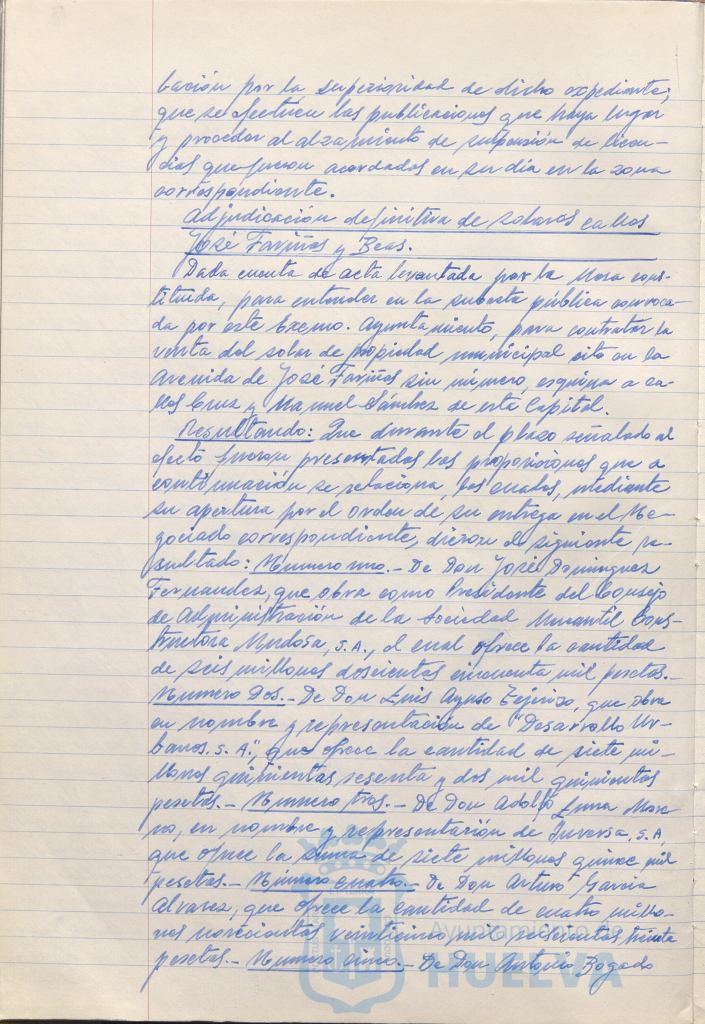 bación por la superioridad de dicho expediente;
que se efectúen las publicaciones que haya lugar
y proceder al alzamiento de suspensión de licen-
cias que fueron acordadas en su día en la zona
correspondiente.
Adjudicación definitiva de solares calles
José Fariñas y Beas.
Dada cuenta de acta levantada por la Mesa cons-
tituida, para entender en la subasta pública convoca-
da por este Excmo. Ayuntamiento, para contratar la
venta del solar de propiedad municipal sito en la
Avenida de José Fariñas sin número, esquina a ca-
lles Cruz y Manuel Sánchez de esta Capital.
Resultando: Que durante el plazo señalado al
efecto fueron presentadas las proposiciones que a
continuación se relaciona, las cuales, mediante
su apertura por el orden de su entrega en el Ne-
gociado correspondiente, dieron el siguiente re-
sultado: Numero uno.- De Don José Dominguez
Fernandez, que obra como Presidente del Consejo
de Administración de la Sociedad Mercantil Cons-
tructora Mudosa, S.A., el cual ofrece la cantidad
de seis millones doscientas cincuenta mil pesetas.-
Numero Dos.- De Don Luis Ayuso, que obra
en nombre y representación de "Desarrollo Ur-
banos. S. A.", que ofrece la cantidad de siete mi-
llones quinientas sesenta y dos mil quinientas
pesetas.- Numero tres.- De Don Adolfo Luna More-
no, en nombre y representación de Inversa, S.A
que ofrece la suma de siete millones quince mil
pesetas.- Número cuatro.- De Don Arturo Garcia
Alvarez, que ofrece la cantidad de cuatro millo-
nes novecientas veinticinco mil seiscientas treinta
pesetas.- Numero cinco.- De Don Antonio Bogado
Ayuntamiento de
HUELVA